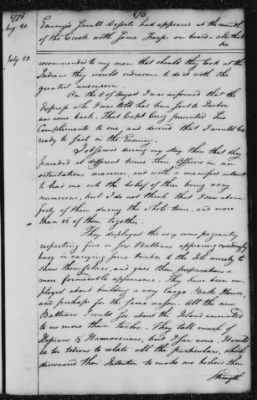 1776
Aug. 20
175
Enemy's small vessels had appeared at the mouth
of the Creek with some Troops on board, also that
the
July 23
recommended to my men that should they look at the
Indians they would endeavor to do it with the
greatest unconcern.
On the 4 of August I was informed that the
Express who I was told has been sent to Quebec
was come back. That Capt Craig presented his
Compliments to me, and desired that I would be
ready to sail in the Evening.
I observed during my stay there that they
paraded at different times their Officers in an
ostentatious manner, and with a manifest intent
to lead me into the belief of their being very
numerous, but I do not think that I saw above
forty of them during the whole time, and more
than 16 of them together.
They displayed the very same pageantry
respecting five or six Batteaus appearing exceedingly
busy in carrying some timber to the Isle merely to
shew themselves, and give their preparations a
more formidable appearance. They have been em
ployed about building a very large Bake House,
and perhaps for the same reason. All the new
Batteaus I could see about the Island amounted
to no more than twelve. They talk much of
Hessians & Hannoverians, but I saw none. It would
be too tedious to relate all the particulars, which
discovered their Intention to make me believe their
Strength